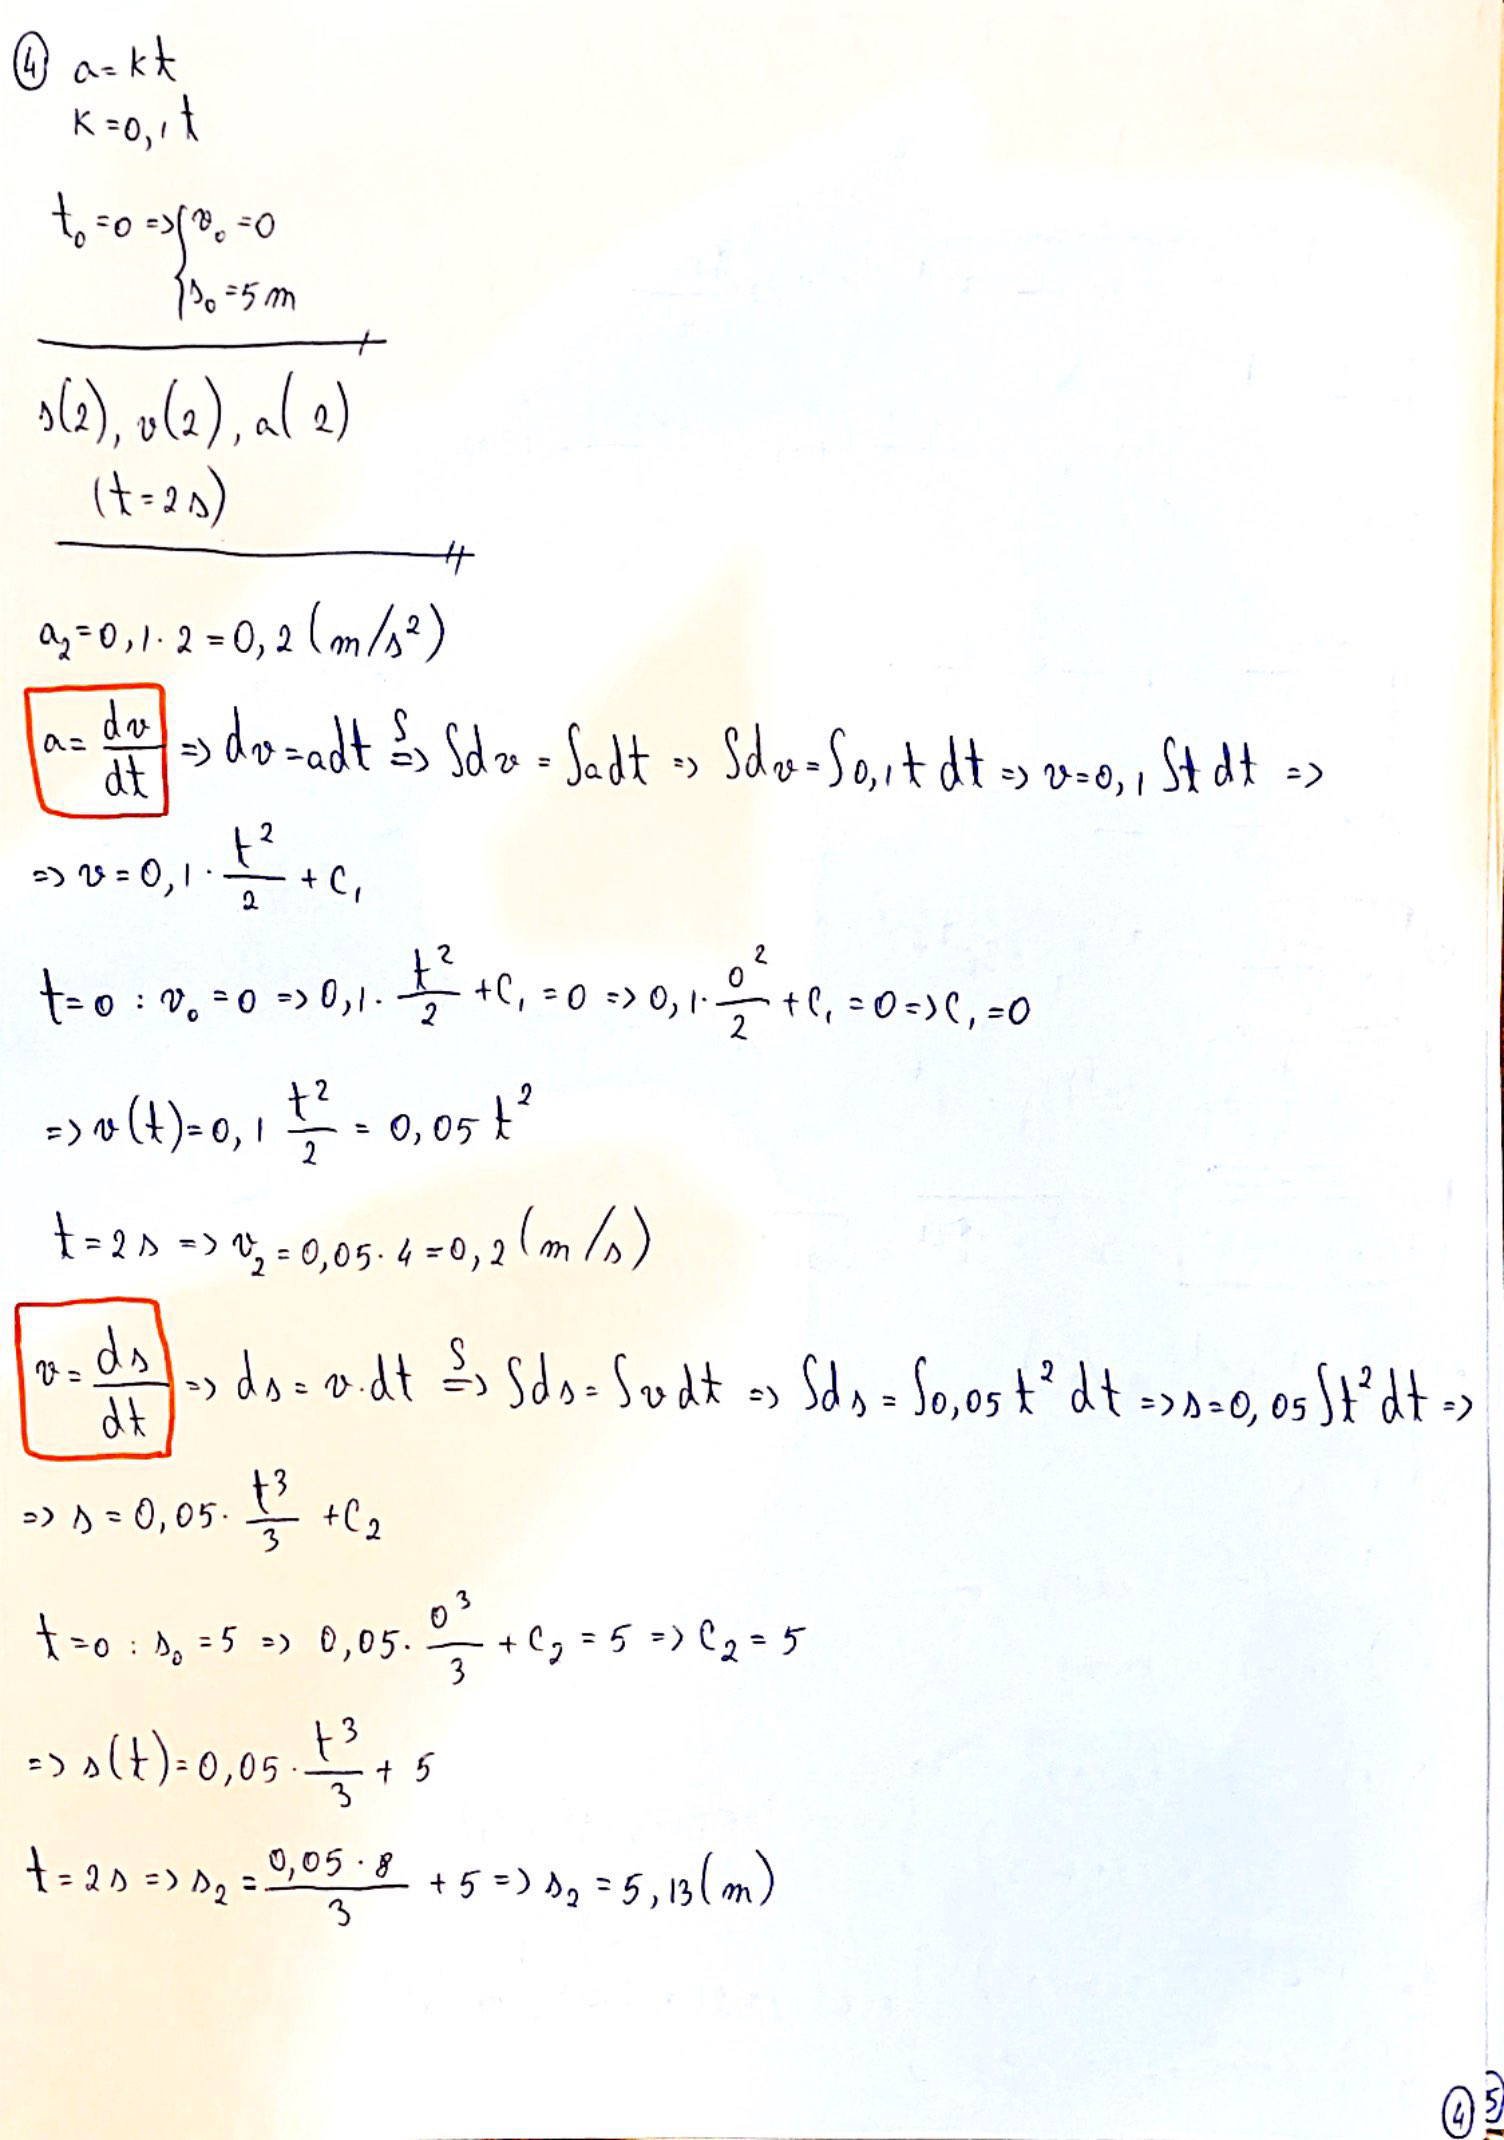 ④ a=kt
K=0,1t
t₀=0 => { v₀=0
s₀=5m
s(2), v(2), a(2)
(t=2s)
a₂=0,1·2=0,2 (m/s²)
a=dv/dt => dv=adt ∫=> ∫dv=∫adt => ∫dv=∫0,1t dt => v=0,1∫t dt =>
=> v=0,1·t²/2+C₁
t=0: v₀=0 => 0,1·t²/2+C₁=0 => 0,1·0²/2+C₁=0 => C₁=0
=> v(t)=0,1 t²/2=0,05t²
t=2s => v₂=0,05·4=0,2 (m/s)
v=ds/dt => ds=v·dt ∫=> ∫ds=∫vdt => ∫ds=∫0,05t² dt => s=0,05∫t²dt =>
=> s=0,05·t³/3+C₂
t=0: s₀=5 => 0,05·0³/3+C₂=5 => C₂=5
=> s(t)=0,05·t³/3+5
t=2s => s₂=0,05·8/3+5 => s₂=5,13(m)
④ ⑤